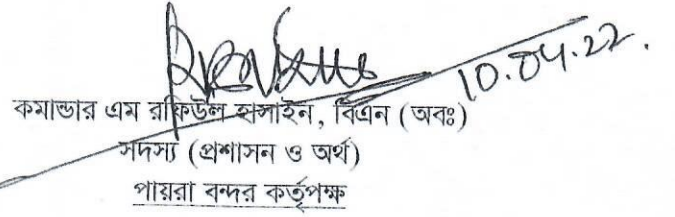 10.04.22.
কমান্ডার এম রফিউল হাসাইন, বিএন (অবঃ)
সদস্য (প্রশাসন ও অর্থ)
পায়রা বন্দর কর্তৃপক্ষ